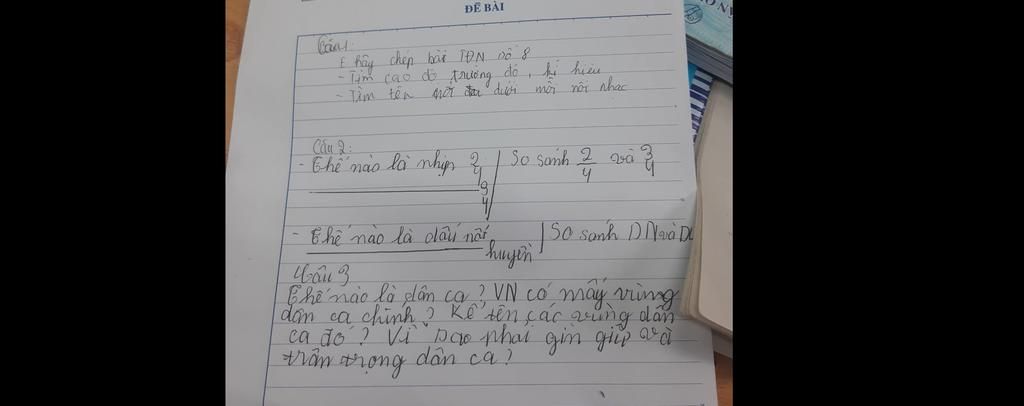 ĐỀ BÀI
Câu 1:
hãy chép bài TĐN số 8
- Tìm cao độ, trường độ, kí hiệu
- Tìm tên nốt dưới mỗi nốt nhạc
Câu 2:
- Thế nào là nhịp 2/4 3/4 | So sánh 2/4 và 3/4
- Thế nào là dấu nối | So sánh DN và DL
huyền
Câu 3
Thế nào là dân ca? VN có mấy vùng
dân ca chính? Kể tên các vùng dân
ca đó? Vì sao phải gìn giữ và
trân trọng dân ca?